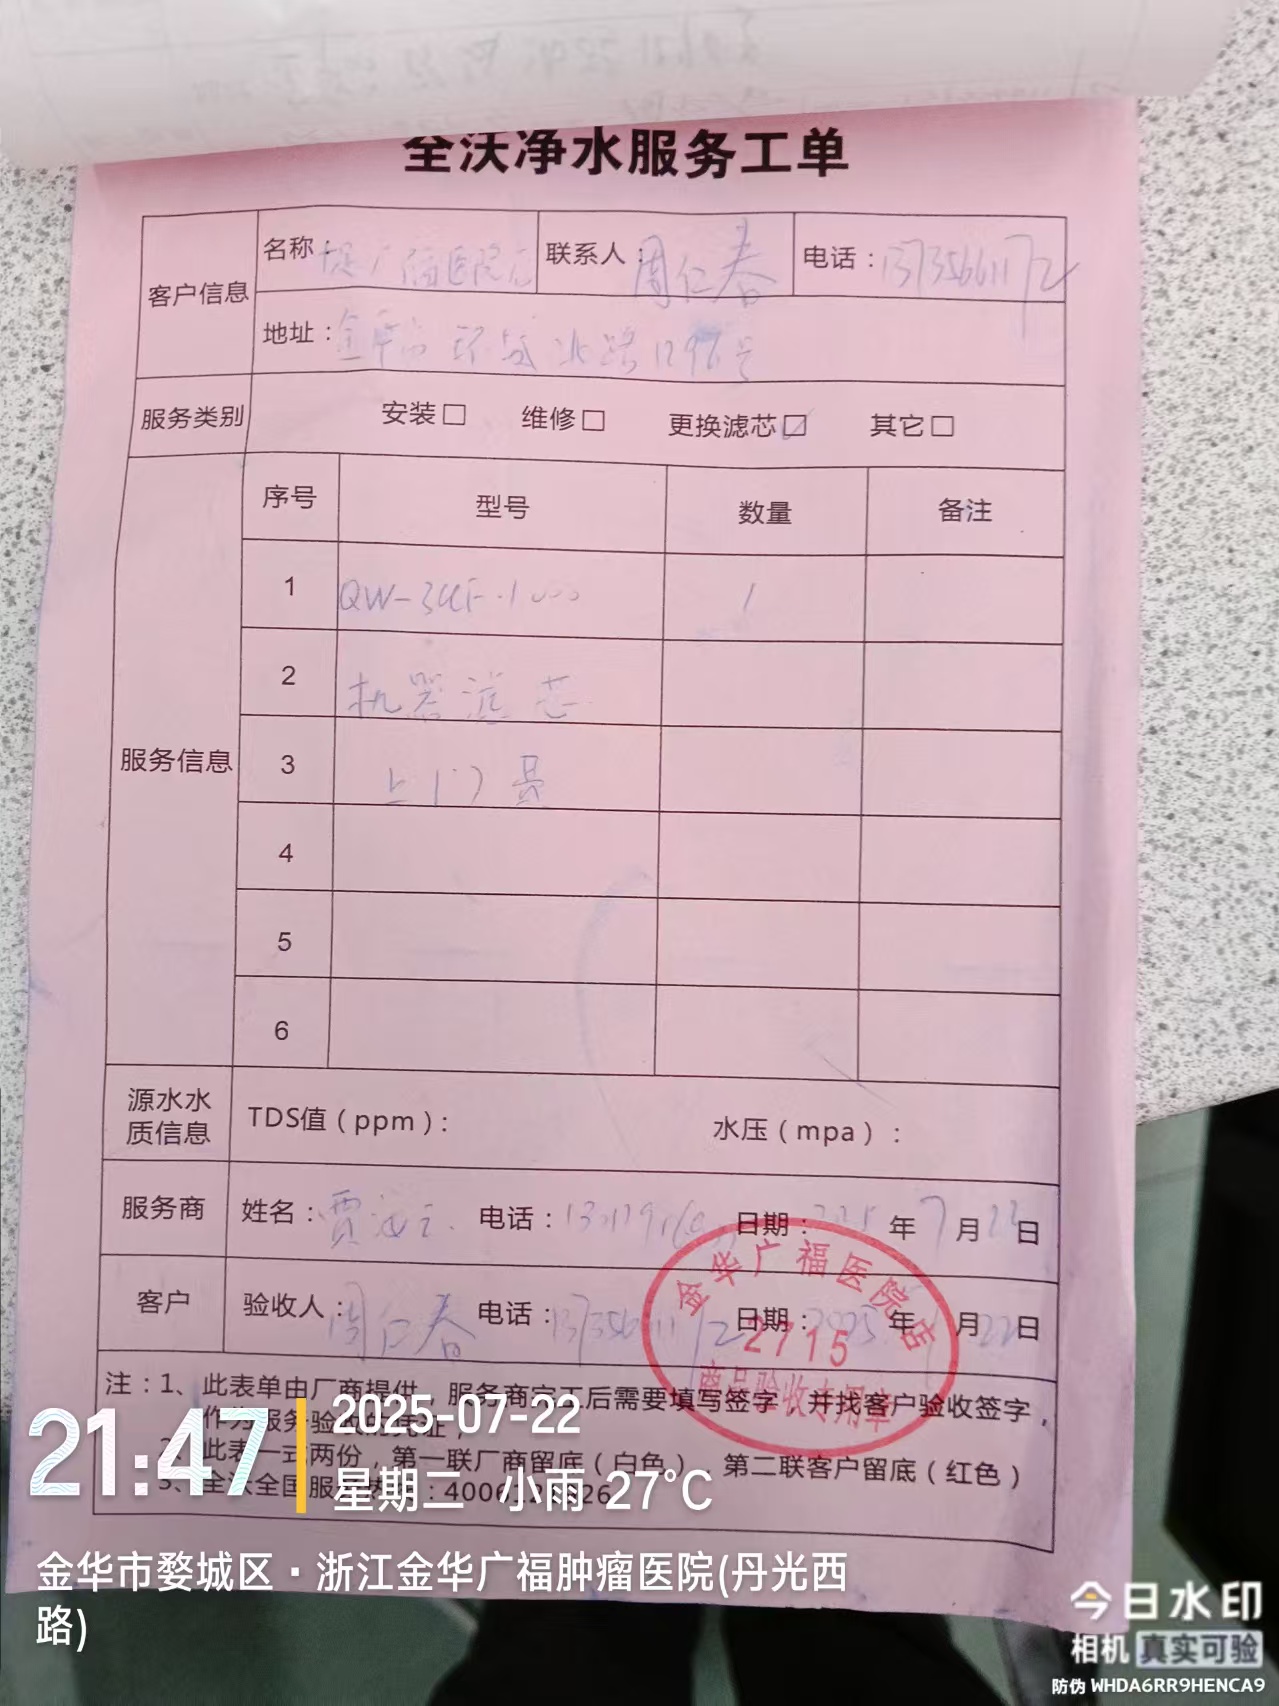 全沃净水服务工单
客户信息
名称：广福医院店 联系人：周仁春 电话：13735661172
地址：金华市环城北路1298号
服务类别 安装□ 维修□ 更换滤芯☑ 其它□
服务信息
序号 型号 数量 备注
1 QW-3UF-1000 1
2 机器滤芯
3 上门
4
5
6
源水水质信息 TDS值（ppm）： 水压（mpa）：
服务商 姓名：贾 电话： 日期：2025年7月22日
客户 验收人：周仁春 电话：13735661172 日期：2025年 月22日
金华广福医院店
2715
商品验收专用章
注：1、此表单由厂商提供，服务商完工后需要填写签字，并找客户验收签字，
作为服务验收的凭证；
2、此表一式两份，第一联厂商留底（白色），第二联客户留底（红色）
3、全沃全国服
21:47
2025-07-22
星期二 小雨 27°C
金华市婺城区·浙江金华广福肿瘤医院(丹光西
路)
今日水印
相机 真实可验
防伪 WHDA6RR9HENCA9